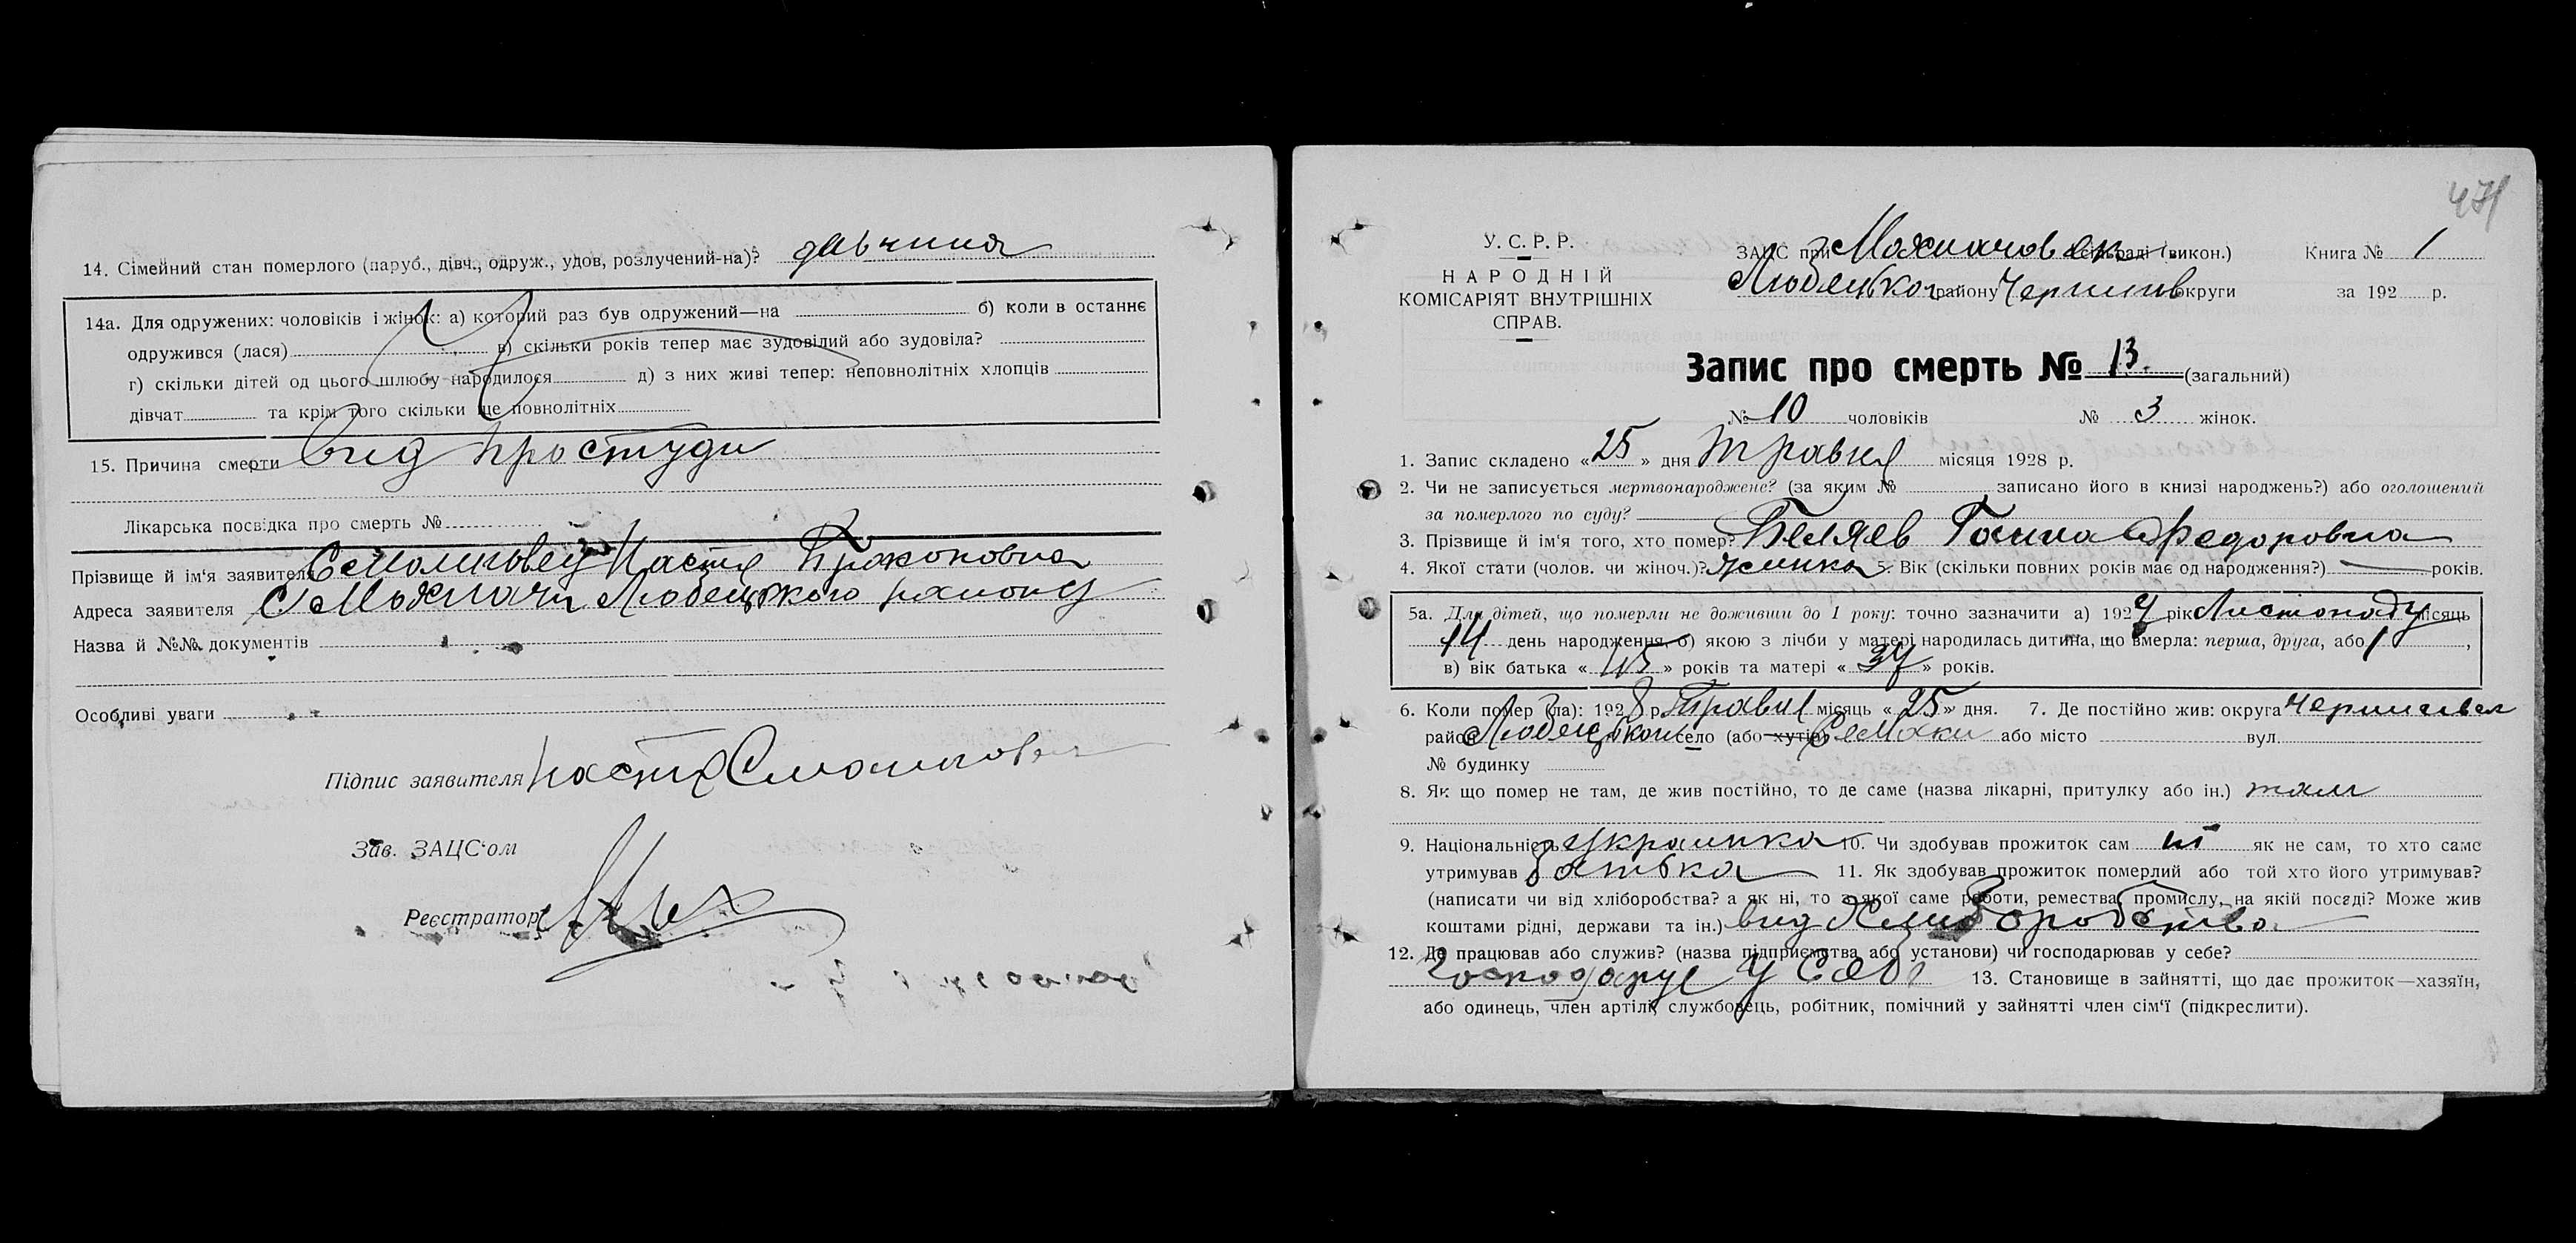 14. Сімейний стан померлого (паруб., дівч., одруж., удов, розлучений-на)? дівчина
14а. Для одружених: чоловіків і жінок: а) который раз був одружений—на б) коли в останнє
одружився (лася) в) скільки років тепер має зудовілий або зудовіла?
г) скільки дітей од цього шлюбу народилося д) з них живі тепер: неповнолітніх хлопців
дівчат та крім того скільки ще повнолітніх
15. Причина смерти вид простуди
Лікарська посвідка про смерть №
Прізвище й ім'я заявителя Настя
Адреса заявителя С Мохначи Любецького району
Назва й №№ документів
Особливі уваги
Підпис заявителя Настя
Зав. ЗАЦС'ом
Реєстратор
471
У. С. Р. Р.
НАРОДНІЙ
КОМІСАРІЯТ ВНУТРІШНІХ
СПРАВ.
ЗАЦС при сельраді (викон.) Книга № 1
Любецького району Чернигів округи за 192 р.
Запис про смерть № 13. (загальний)
№ 10 чоловіків № 3 жінок.
1. Запис складено « 25 » дня Травня місяця 1928 р.
2. Чи не записується мертвонароджене? (за яким № записано його в книзі народжень?) або оголошений
за померлого по суду?
3. Прізвище й ім'я того, хто помер? Беляев Ганна Федоровна
4. Якої стати (чолов. чи жіноч.)? жинка 5. Вік (скільки повних років має од народження?) — років.
5а. Для дітей, що померли не доживши до 1 року: точно зазначити а) 1927 рік Листопаду місяць
14 день народження, б) якою з лічби у матері народилась дитина, що вмерла: перша, друга, або 1,
в) вік батька « 45 » років та матері « 37 » років.
6. Коли помер (ла): 1928 р. Травня місяць « 25 » дня. 7. Де постійно жив: округа
район село (або хутір) або місто вул.
№ будинку
8. Як що помер не там, де жив постійно, то де саме (назва лікарні, притулку або ін.) там
9. Національність Украинка 10. Чи здобував прожиток сам ні як не сам, то хто саме
утримував батька 11. Як здобував прожиток померлий або той хто його утримував?
(написати чи від хліборобства? а як ні, то з якої саме роботи, ремества, промислу, на якій посаді? Може жив
коштами рідні, держави та ін.) вид Хлиборобство.
12. Де працював або служив? (назва підприємства або установи) чи господарював у себе?
Господарує у себе 13. Становище в зайнятті, що дає прожиток—хазяїн,
або одинець, член артілі, службовець, робітник, помічний у зайнятті член сім'ї (підкреслити).